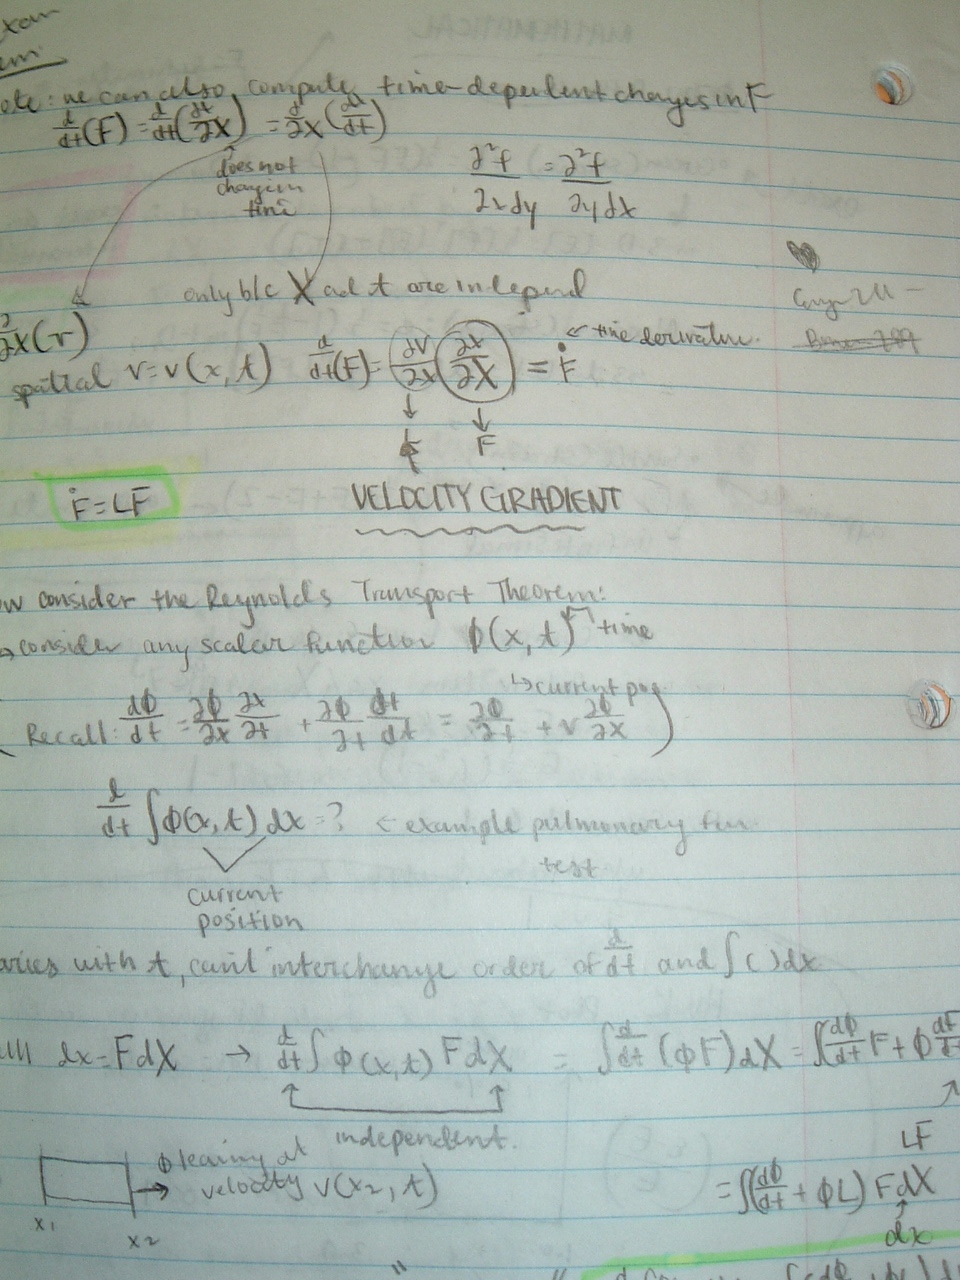 xam
em:
ote: we can also compute time-dependent changes in F
d/dt(F) = d/dt(∂x/∂X) = ∂/∂X(dx/dt)
does not
change in
time
∂²f/∂x∂y = ∂²f/∂y∂x
only b/c X ad t are independ
∂/∂X(v)
← time derivative.
spatial v=v(x,t) d/dt(F)=(∂v/∂x)(∂x/∂X) = Ḟ
↓ ↓
L F
Ḟ=LF
VELOCITY GRADIENT
w consider the Reynolds Transport Theorem:
→consider any scalar function ϕ(x,t) time
↳current pos
Recall: dϕ/dt = ∂ϕ/∂x ∂x/∂t + ∂ϕ/∂t dt/dt = ∂ϕ/∂t + v ∂ϕ/∂x )
d/dt ∫ϕ(x,t) dx=? ← example pulmonary fun
test
current
position
aries with t, can't interchange order of d/dt and ∫( )dx
all dx=FdX → d/dt ∫ ϕ(x,t) FdX = ∫d/dt (ϕF)dX = ∫(dϕ/dt F + ϕ dF/dt
independent.
LF
ϕ leaving at
→ velocity v(x2,t)
= ∫(dϕ/dt + ϕL) FdX
x1
x2
dx